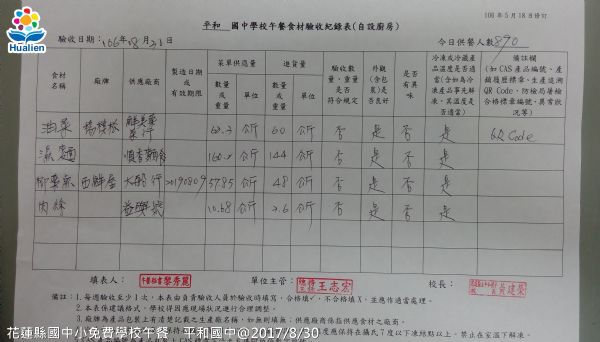 Hualien
106年5月18日修訂
平和 國中學校午餐食材驗收紀錄表(自設廚房)
驗收日期：106年08月31日
今日供餐人數890
食材名稱 廠牌 供應廠商 製造日期或有效期限 菜單供應量 進貨量 驗收數量、重量是否符合規定 外觀(含包裝)是否良好 是否有異味 冷凍或冷藏產品溫度是否適當(含如為冷凍產品事先解凍，其溫度是否適當) 備註欄(如CAS產品編號、產銷履歷標章、生產追溯QR Code、防檢局屠檢合格標章編號、異常狀況等)
數量或重量 單位 數量或重量 單位
油菜 公斤 60 公斤 否 是 否 是 QR Code
公斤 144 公斤 否 是 否 是
20190809 57.85 公斤 48 公斤 否 是 否 是
肉絲 10.68 公斤 2.6 公斤 否 是 否 是
填表人： 黎秀麗 單位主管： 王志宏 校長： 黃建榮
備註：1.每週驗收至少1次，本表由負責驗收人員於驗收時填寫，合格填✓，不合格填X，並應作適當處理。
2.本表係建議格式，學校得因應現場狀況進行合理調整。
3.廠牌為產品包裝上有清楚記載之生產廠名稱，如無則填無；供應廠商係指供應食材之廠商。
度應保持在攝氏7度以下凍結點以上，禁止在室溫下解凍。
花蓮縣國中小免費學校午餐 . 平和國中@2017/8/30